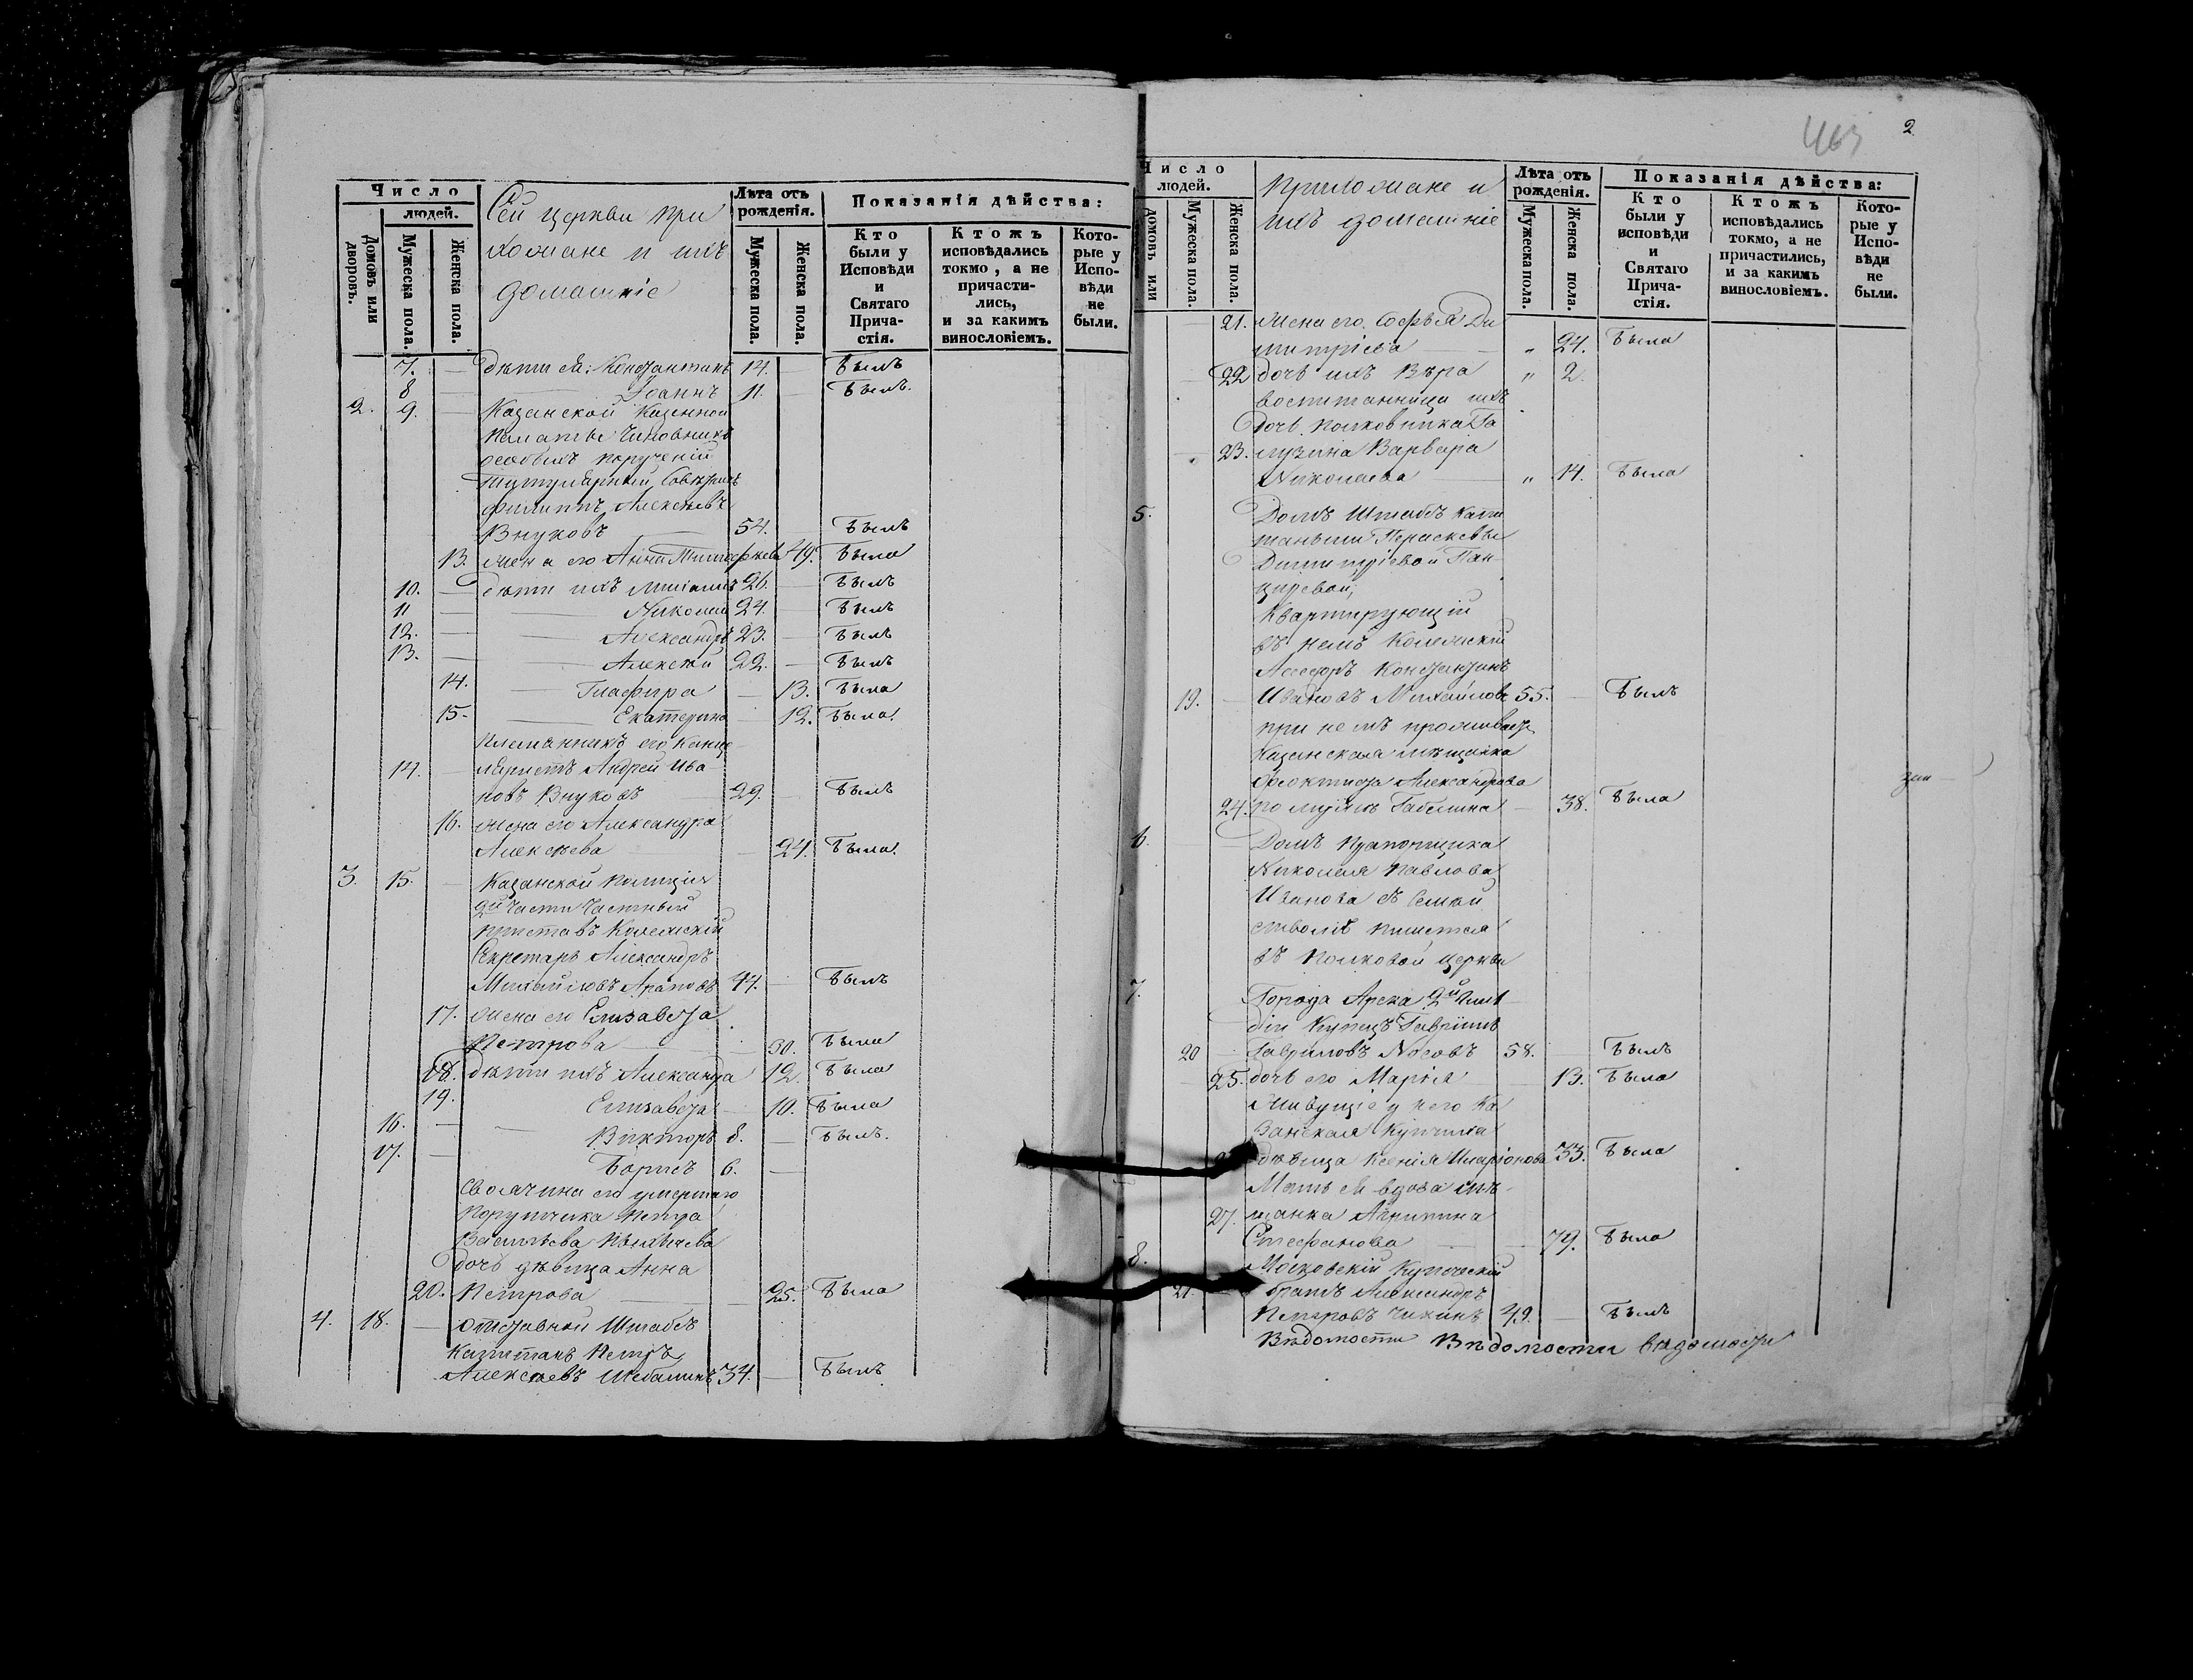 Число
людей.
Домовъ или дворовъ.
Мужеска пола.
Женска пола.
Сей церкви при
хожане и ихъ
домашніе
Лѣта отъ рожденія.
Мужеска пола.
Женска пола.
Показанія дѣйства:
Кто были у Исповѣди и Святаго Причастія.
Ктожъ исповѣдались токмо, а не причастились, и за какимъ винословіемъ.
Которые у Исповѣди не были.
7. — дѣти ея: Константинъ 14. — Былъ
8 — Іоаннъ 11. — Былъ.
2. 9. — Казанской Казенной
Палаты Чиновникъ
особыхъ порученій
Титулярный Совѣтникъ
Филиппъ Алексѣевъ
Внуковъ — 54. — Былъ
13. жена его Анна Тимофеева 49. Была
10. — дѣти ихъ Михаилъ 26. — Былъ
11 — Николай 24. — Былъ
12. — Александръ 23. — Былъ
13. — Алексѣй 22. — Былъ
14. — Глафира — 13. Была
15. — Екатерина — 12. Была.
племянникъ его Канце
14. — ляристъ Андрей Ива
новъ Внуковъ — 29. — Былъ
16. жена его Александра
Алексѣева — 24. Была.
3. 15. — Казанской Полиціи
2й части Частный
приставъ Колежскій
Секретарь Александръ
Михайловъ Араповъ 44. — Былъ
17. жена его Елизавета
Петрова — 30. Была
18. дѣти ихъ Александра 12. Была
19. Елизавета — 10. Была
16. — Викторъ 8. — Былъ.
17. — Борисъ 6. —
Своячина его умершаго
Порутчика Петра
Васильева
дочь дѣвица Анна
20. Петрова — 25. Была
4. 18. — Отставной Штабсъ
Капитанъ Петръ
Алексѣевъ Шебалинъ 34. — Былъ
463
2
Число
людей.
Домовъ или
Мужеска пола.
Женска пола.
Прихожане и
ихъ домашніе
Лѣта отъ рожденія.
Мужеска пола.
Женска пола.
Показанія дѣйства:
Кто были у исповѣди и Святаго Причастія.
Ктожъ исповѣдались токмо, а не причастились, и за какимъ винословіемъ.
Которые у Исповѣди не были.
— 21. жена его Софья Ди
митріева — „ 24. Была
— 22 дочь ихъ Вѣра „ 2.
воспитанница ихъ
дочь Полковника Га
— 23. лузина Варвара
Николаева — „ 14. Была
5. Домъ Штабсъ Капи
таньши Парасковьи
Димитріевой Пан-
цыревой,
Квартирующій
въ немъ Колежскій
Асесоръ Константинъ
19. — Ивановъ Михайловъ 55. — Былъ
при немъ проживаетъ
Казанская мѣщанка
Феоктиста Александрова
24. по мужѣ — 38. Была
6. Домъ Прапорщика
Николая Павлова
Иванова съ Семей
ствомъ пишется
въ Полковой церкви
7. Города Арска 2й гиль
діи Купецъ Гавріилъ
20 — Гавриловъ Носовъ 58. — Былъ
— 25. дочь его Марія — 13. Была
Живущіе у него Ка
занская Купчиха
дѣвица Ксенія Иларіонова 33. Была
Мать ея вдова мѣ-
27. щанка Агрипина
Стефанова — 79. Была
8. Московскій Купеческій
21. братъ Александръ
Петровъ Чижинъ 49. — Былъ
Вѣдомости Вѣдомости вѣдомости